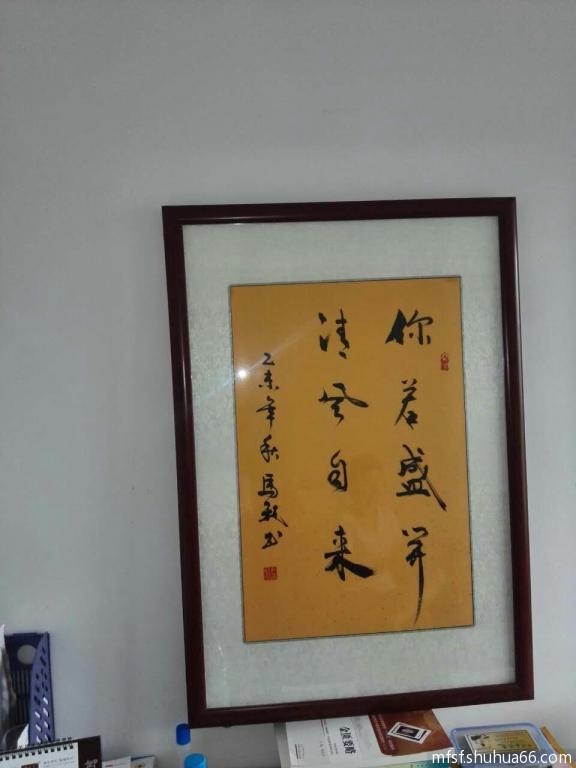 你若盛开
清风自来
乙未年秋马毅书
金匮要略
mfsfshuhua66.com